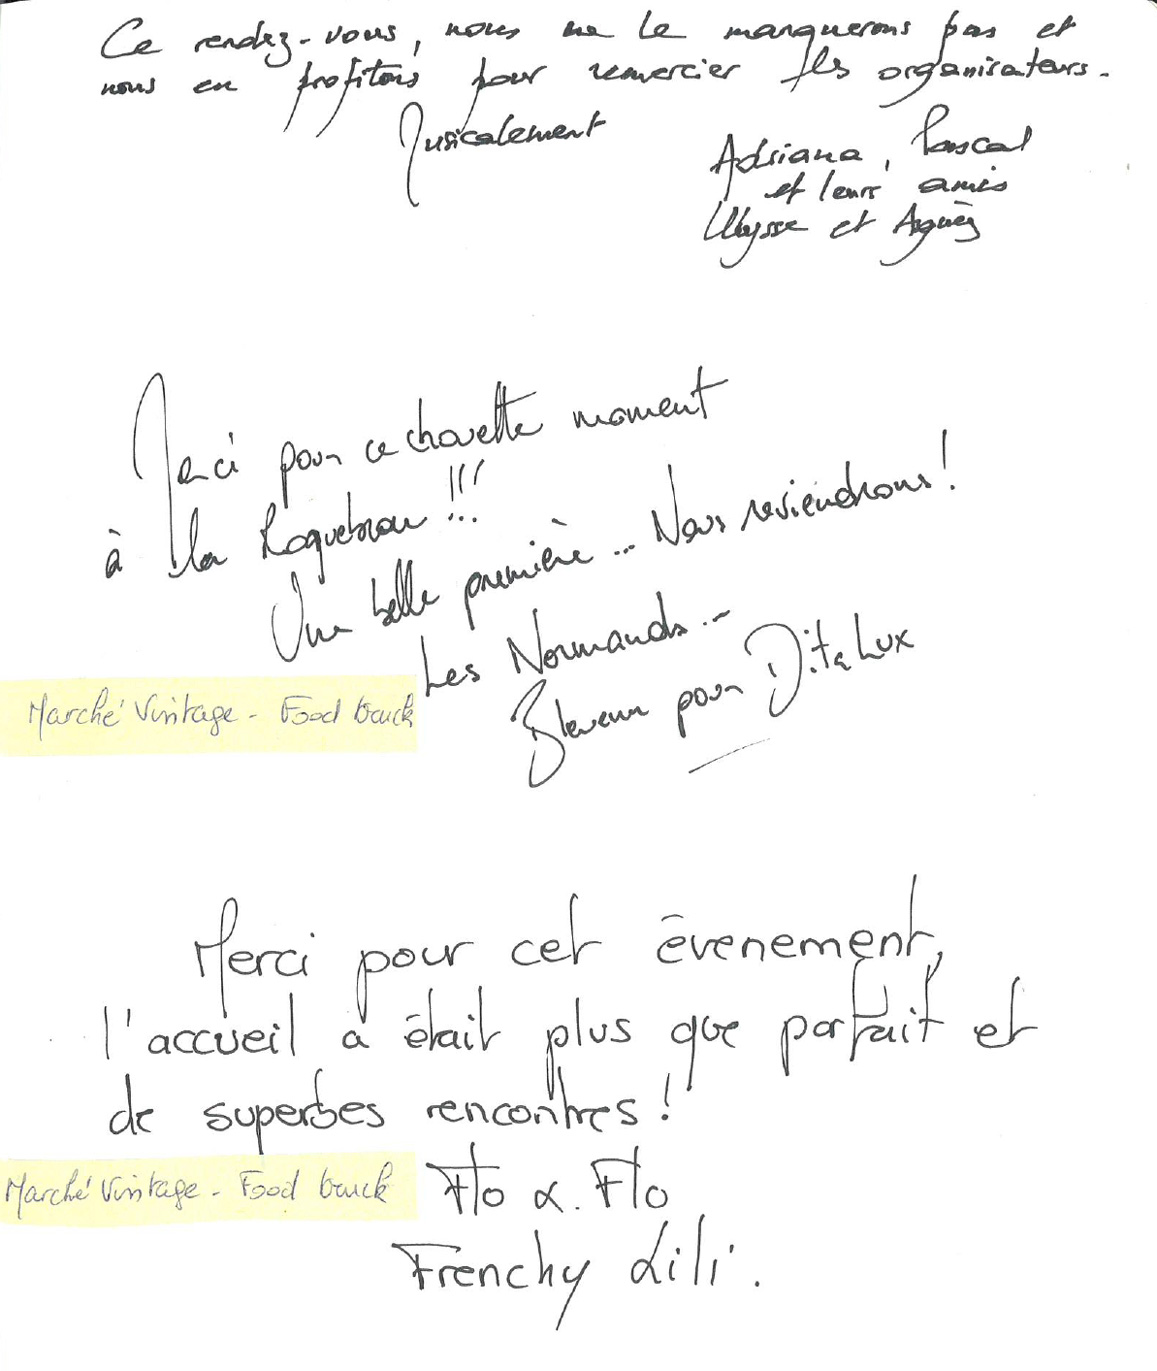 Ce rendez-vous, nous ne le manquerons pas et
nous en profitons pour remercier les organisateurs.
Musicalement
Adriana, Pascal
et leurs amis
Ulysse et Agnès
Merci pour ce chouette moment
à la Roquebrou !!!
Une belle première... Nous reviendrons !
Les Normands...
pour Dita Lux
Marché Vintage - Food truck
Merci pour cet évenement,
l'accueil a était plus que parfait et
de superbes rencontres !
Marché Vintage - Food truck
Flo & Flo
Frenchy Lili.